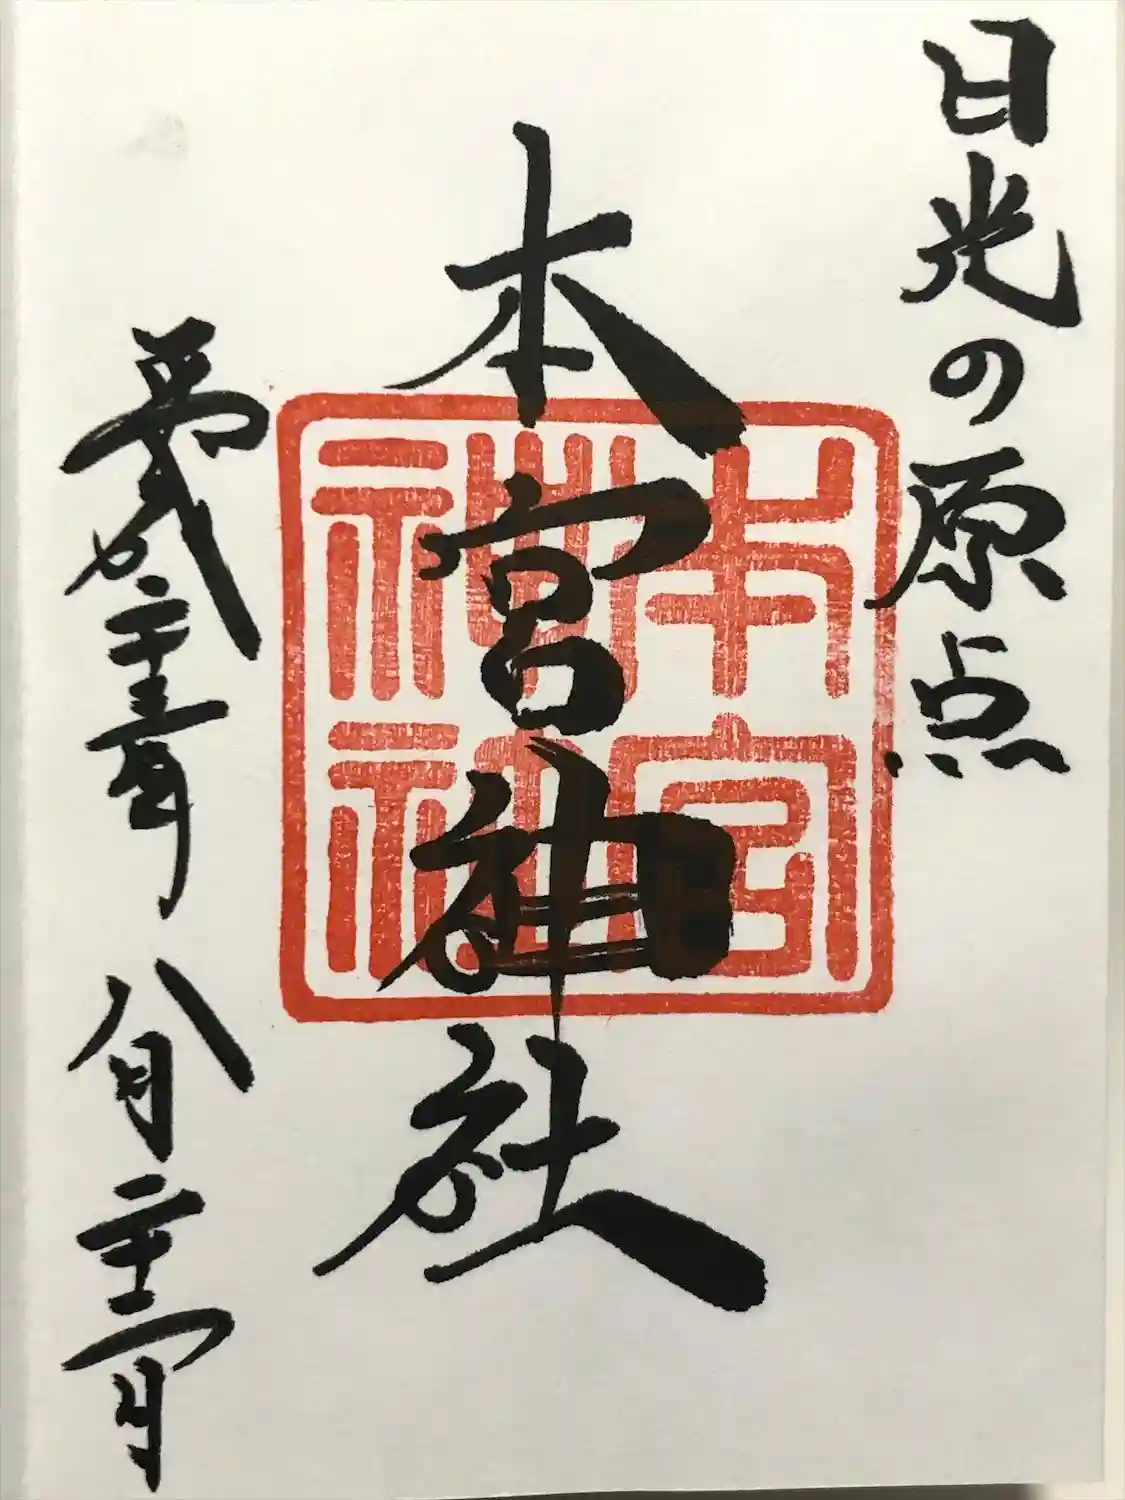 日光の原点
本宮神社
本宮
神社
平成二十年八月二十日